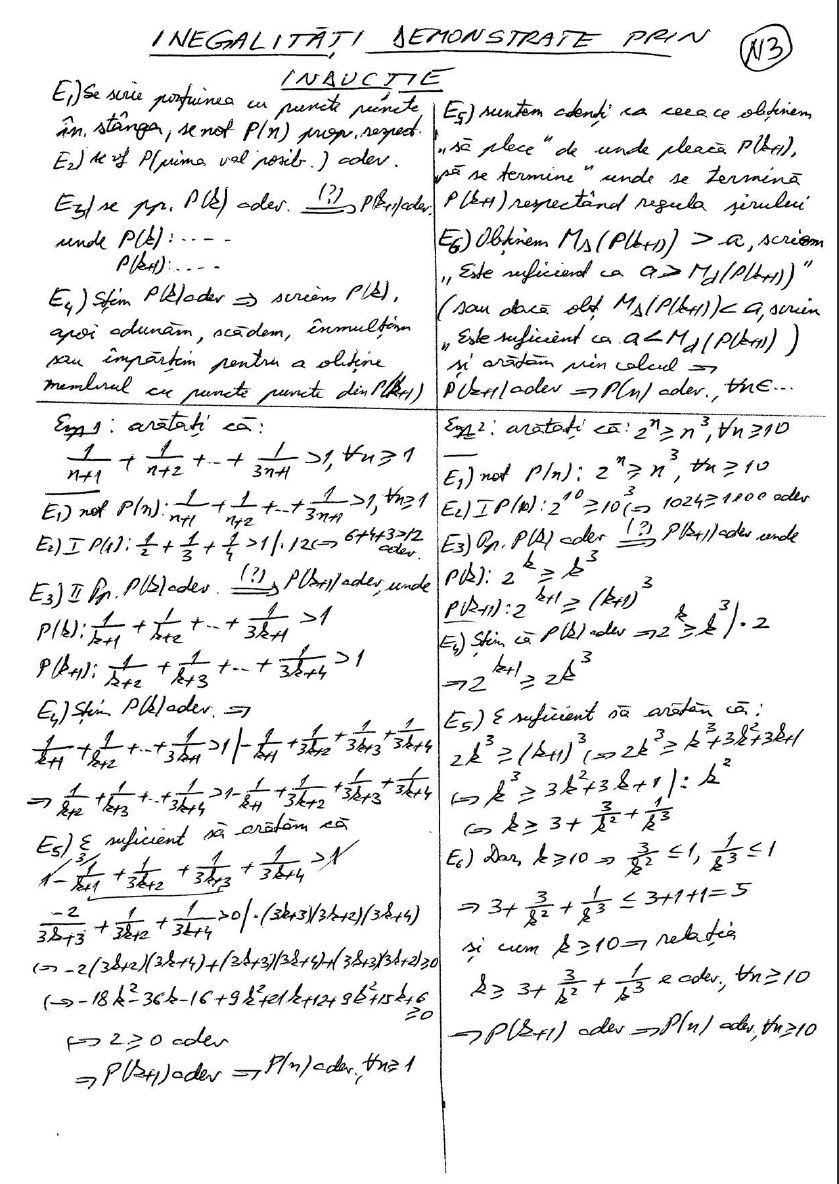 INEGALITĂȚI DEMONSTRATE PRIN
N3
INDUCȚIE
E₁) Se scrie porțiunea cu puncte puncte
în stânga, se not P(n) prop. respect.
E₂) se vf P(prima val posib.) adev.
E₃) se pp. P(k) adev. (?)⟹ P(k+1) adev.
unde P(k): ----
P(k+1): ----
E₄) Știm P(k) adev ⇒ scriem P(k),
apoi adunăm, scădem, înmulțim
sau împărțim pentru a obține
membrul cu puncte puncte din P(k+1)
E₅) suntem atenți ca ceea ce obținem
„să plece" de unde pleacă P(k+1),
„să se termine" unde se termină
P(k+1) respectând regula șirului
E₆) Obținem Ms(P(k+1)) > a, scriem
„Este suficient ca a > Md(P(k+1))"
(sau dacă obț Ms(P(k+1)) < a, scriem
„Este suficient ca a < Md(P(k+1)))
și arătăm prin calcul ⇒
P(k+1) adev ⇒ P(n) adev., ∀n∈...
Exp 1: arătați că:
1/(n+1) + 1/(n+2) + ... + 1/(3n+1) > 1, ∀n ≥ 1
E₁) not P(n): 1/(n+1) + 1/(n+2) + ... + 1/(3n+1) > 1, ∀n≥1
E₂) I P(1): 1/2 + 1/3 + 1/4 > 1 |·12 ⇔ 6+4+3>12 adev.
E₃) II Pp. P(k) adev. (?)⟹ P(k+1) adev, unde
P(k): 1/(k+1) + 1/(k+2) + ... + 1/(3k+1) > 1
P(k+1): 1/(k+2) + 1/(k+3) + ... + 1/(3k+4) > 1
E₄) Știm P(k) adev. ⇒
1/(k+1) + 1/(k+2) + ... + 1/(3k+1) > 1 | - 1/(k+1) + 1/(3k+2) + 1/(3k+3) + 1/(3k+4)
⇒ 1/(k+2) + 1/(k+3) + ... + 1/(3k+4) > 1 - 1/(k+1) + 1/(3k+2) + 1/(3k+3) + 1/(3k+4)
E₅) E suficient să arătăm că
1 - ³⁾1/(k+1) + 1/(3k+2) + 1/(3k+3) + 1/(3k+4) > 1
-2/(3k+3) + 1/(3k+2) + 1/(3k+4) > 0 | ·(3k+3)(3k+2)(3k+4)
⇔ -2(3k+2)(3k+4) + (3k+3)(3k+4) + (3k+3)(3k+2) ≥ 0
⇔ -18k² - 36k - 16 + 9k² + 21k + 12 + 9k² + 15k + 6 ≥ 0
⇔ 2 ≥ 0 adev
⇒ P(k+1) adev ⇒ P(n) adev., ∀n ≥ 1
Exp 2: arătați că: 2ⁿ ≥ n³, ∀n ≥ 10
E₁) not P(n): 2ⁿ ≥ n³, ∀n ≥ 10
E₂) I P(10): 2¹⁰ ≥ 10³ ⇔ 1024 ≥ 1000 adev
E₃) Pp. P(k) adev (?)⟹ P(k+1) adev unde
P(k): 2ᵏ ≥ k³
P(k+1): 2ᵏ⁺¹ ≥ (k+1)³
E₄) Știm că P(k) adev ⇒ 2ᵏ ≥ k³ | · 2
⇒ 2ᵏ⁺¹ ≥ 2k³
E₅) E suficient să arătăm că:
2k³ ≥ (k+1)³ ⇔ 2k³ ≥ k³+3k²+3k+1
⇔ k³ ≥ 3k²+3k+1 | : k²
⇔ k ≥ 3 + 3/k² + 1/k³
E₆) Dar, k ≥ 10 ⇒ 3/k² ≤ 1, 1/k³ ≤ 1
⇒ 3 + 3/k² + 1/k³ ≤ 3+1+1=5
și cum k ≥ 10 ⇒ relația
k ≥ 3 + 3/k² + 1/k³ e adev., ∀n ≥ 10
⇒ P(k+1) adev ⇒ P(n) adev, ∀n ≥ 10